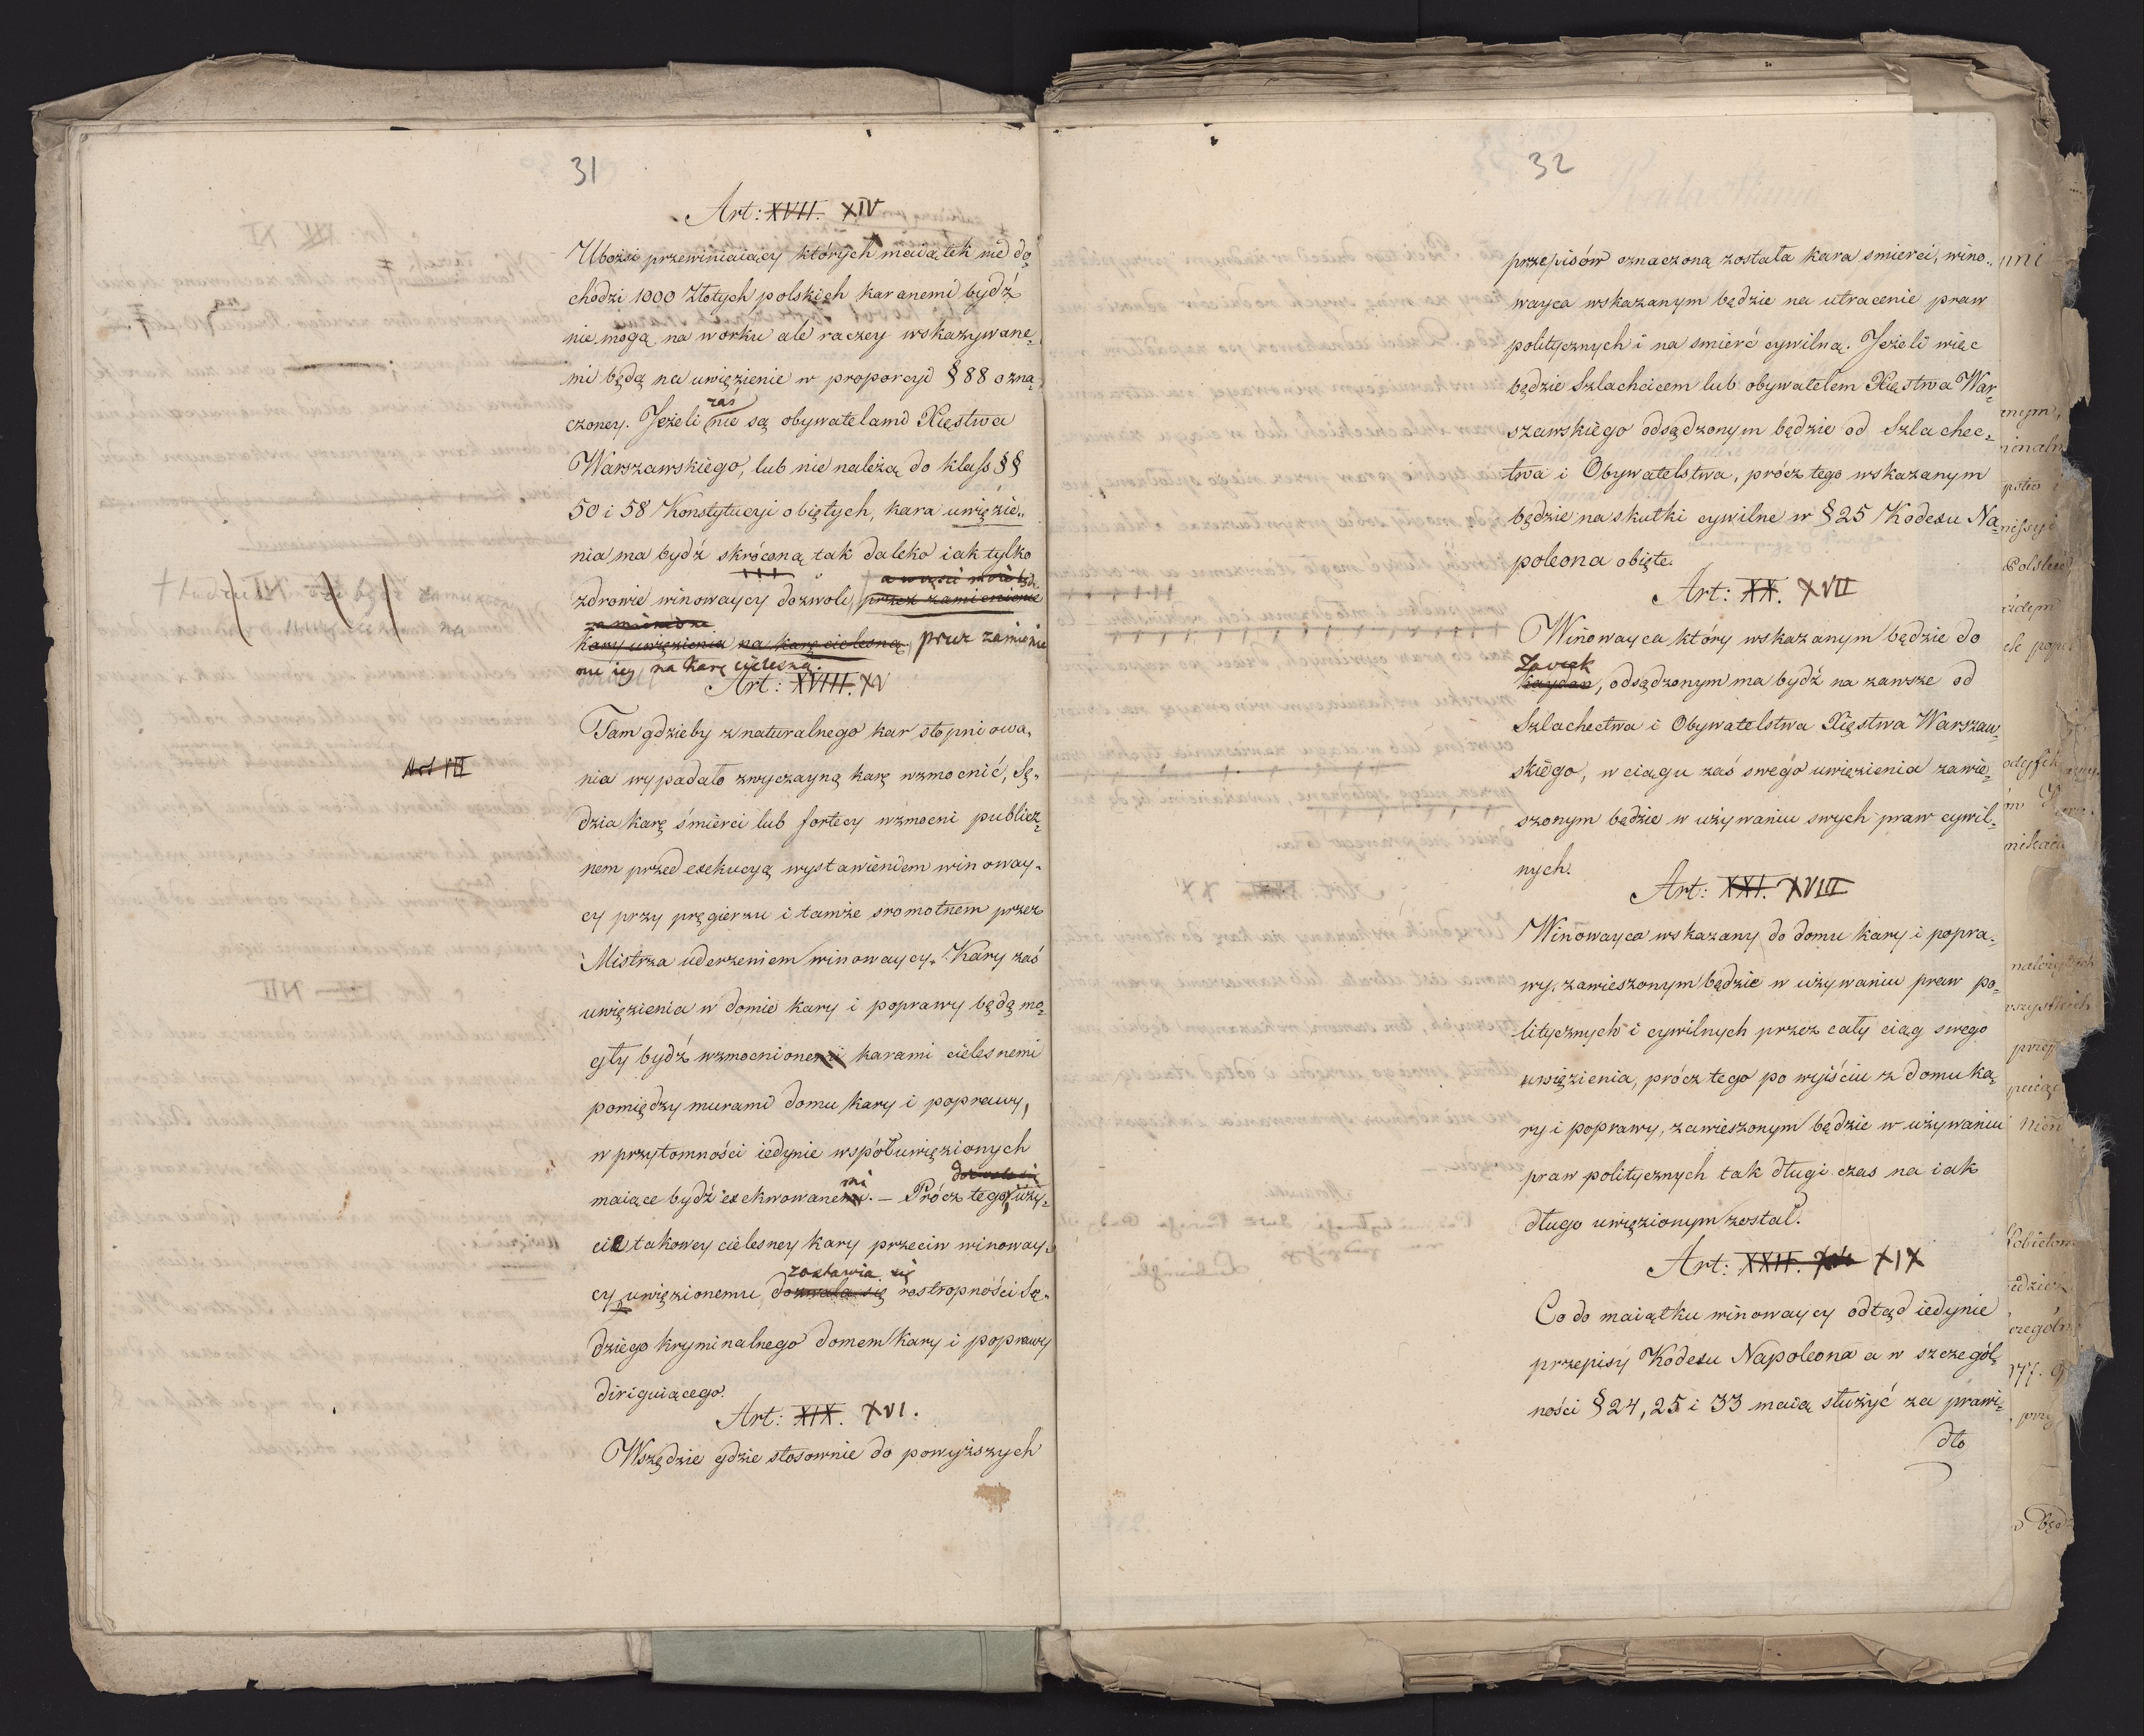 31
Art: XVII. XIV
Ubożsi przewiniaiący których maiątek nie do„
chodzi 1000 Złotych polskich karanemi bydź
nie mogą na worku ale raczey wskazywane„
mi będą na uwięzienie w proporcyi § 88 ozna„
zaś
czoney. Jeżeli nie są obywatelami Xięstwa
Warszawskiego, lub nie należą do klass §§
50 i 58 Konstytucyi obiętych, kara uwięzie„
nia ma bydź skróconą tak daleko iak tylko
zdrowie winowaycy dozwoli, przez zamienienie
kary uwięzienia na karę cielesną. przez zamienie
nie iey na karę cielesną.
Art: XVIII. XV
Tam gdzieby z naturalnego kar stopniowa„
Art III
nia wypadało zwyczayną karę wzmocnić, Sę„
dzia karę śmierci lub fortecy wzmocni publicz„
nem przed exekucyą wystawieniem winoway„
cy przy pręgierzu i tamże sromotnem przez
Mistrza uderzeniem winowaycy. Kary zaś
uwięzienia w domie kary i poprawy będą mo„
gły bydź wzmocnionemi karami cielesnemi
pomiędzy murami domu kary i poprawy,
w przytomności iedynie współuwięzionych
maiące bydź exekwowanemi. — Prócz tego uży„
cie takowey cielesney kary przeciw winoway„
zostawia się
cy uwięzionemu dozwala się rostropności Sę„
dziego kryminalnego domem kary i poprawy
diriguiącego.
Art: XIX. XVI.
Wszędzie gdzie stosownie do powyższych
32
przepisów oznaczoną została kara smierci, wino„
wayca wskazanym będzie na utracenie praw
politycznych i na smierć cywilną. Jeżeli więc
będzie Szlachcicem lub obywatelem Xięstwa War„
szawskiego odsądzonym będzie od Szlachec„
twa i Obywatelstwa, prócz tego wskazanym
będzie na skutki cywilne w § 25 Kodexu Na„
poleona obięte.
Art: XX. XVII
Winowayca który wskazanym będzie do
Kaydan, odsądzonym ma bydź na zawsze od
Szlachectwa i Obywatelstwa Xięstwa Warszaw„
skiego, w ciągu zaś swego uwięzienia zawie„
szonym będzie w używaniu swych praw cywil„
nych.
Art: XXI. XVIII
Winowayca wskazany do domu kary i popra„
wy, zawieszonym będzie w używaniu praw po„
litycznych i cywilnych przez cały ciąg swego
uwięzienia, prócz tego po wyiściu z domu ka„
ry i poprawy, zawieszonym będzie w używaniu
praw politycznych tak długi czas na iak
długo uwięzionym został.
Art: XXII. XIX
Co do maiątku winowaycy odtąd iedynie
przepisy Kodexu Napoleona a w szczegól„
ności § 24, 25 i 33 maią służyć za prawi„
dło